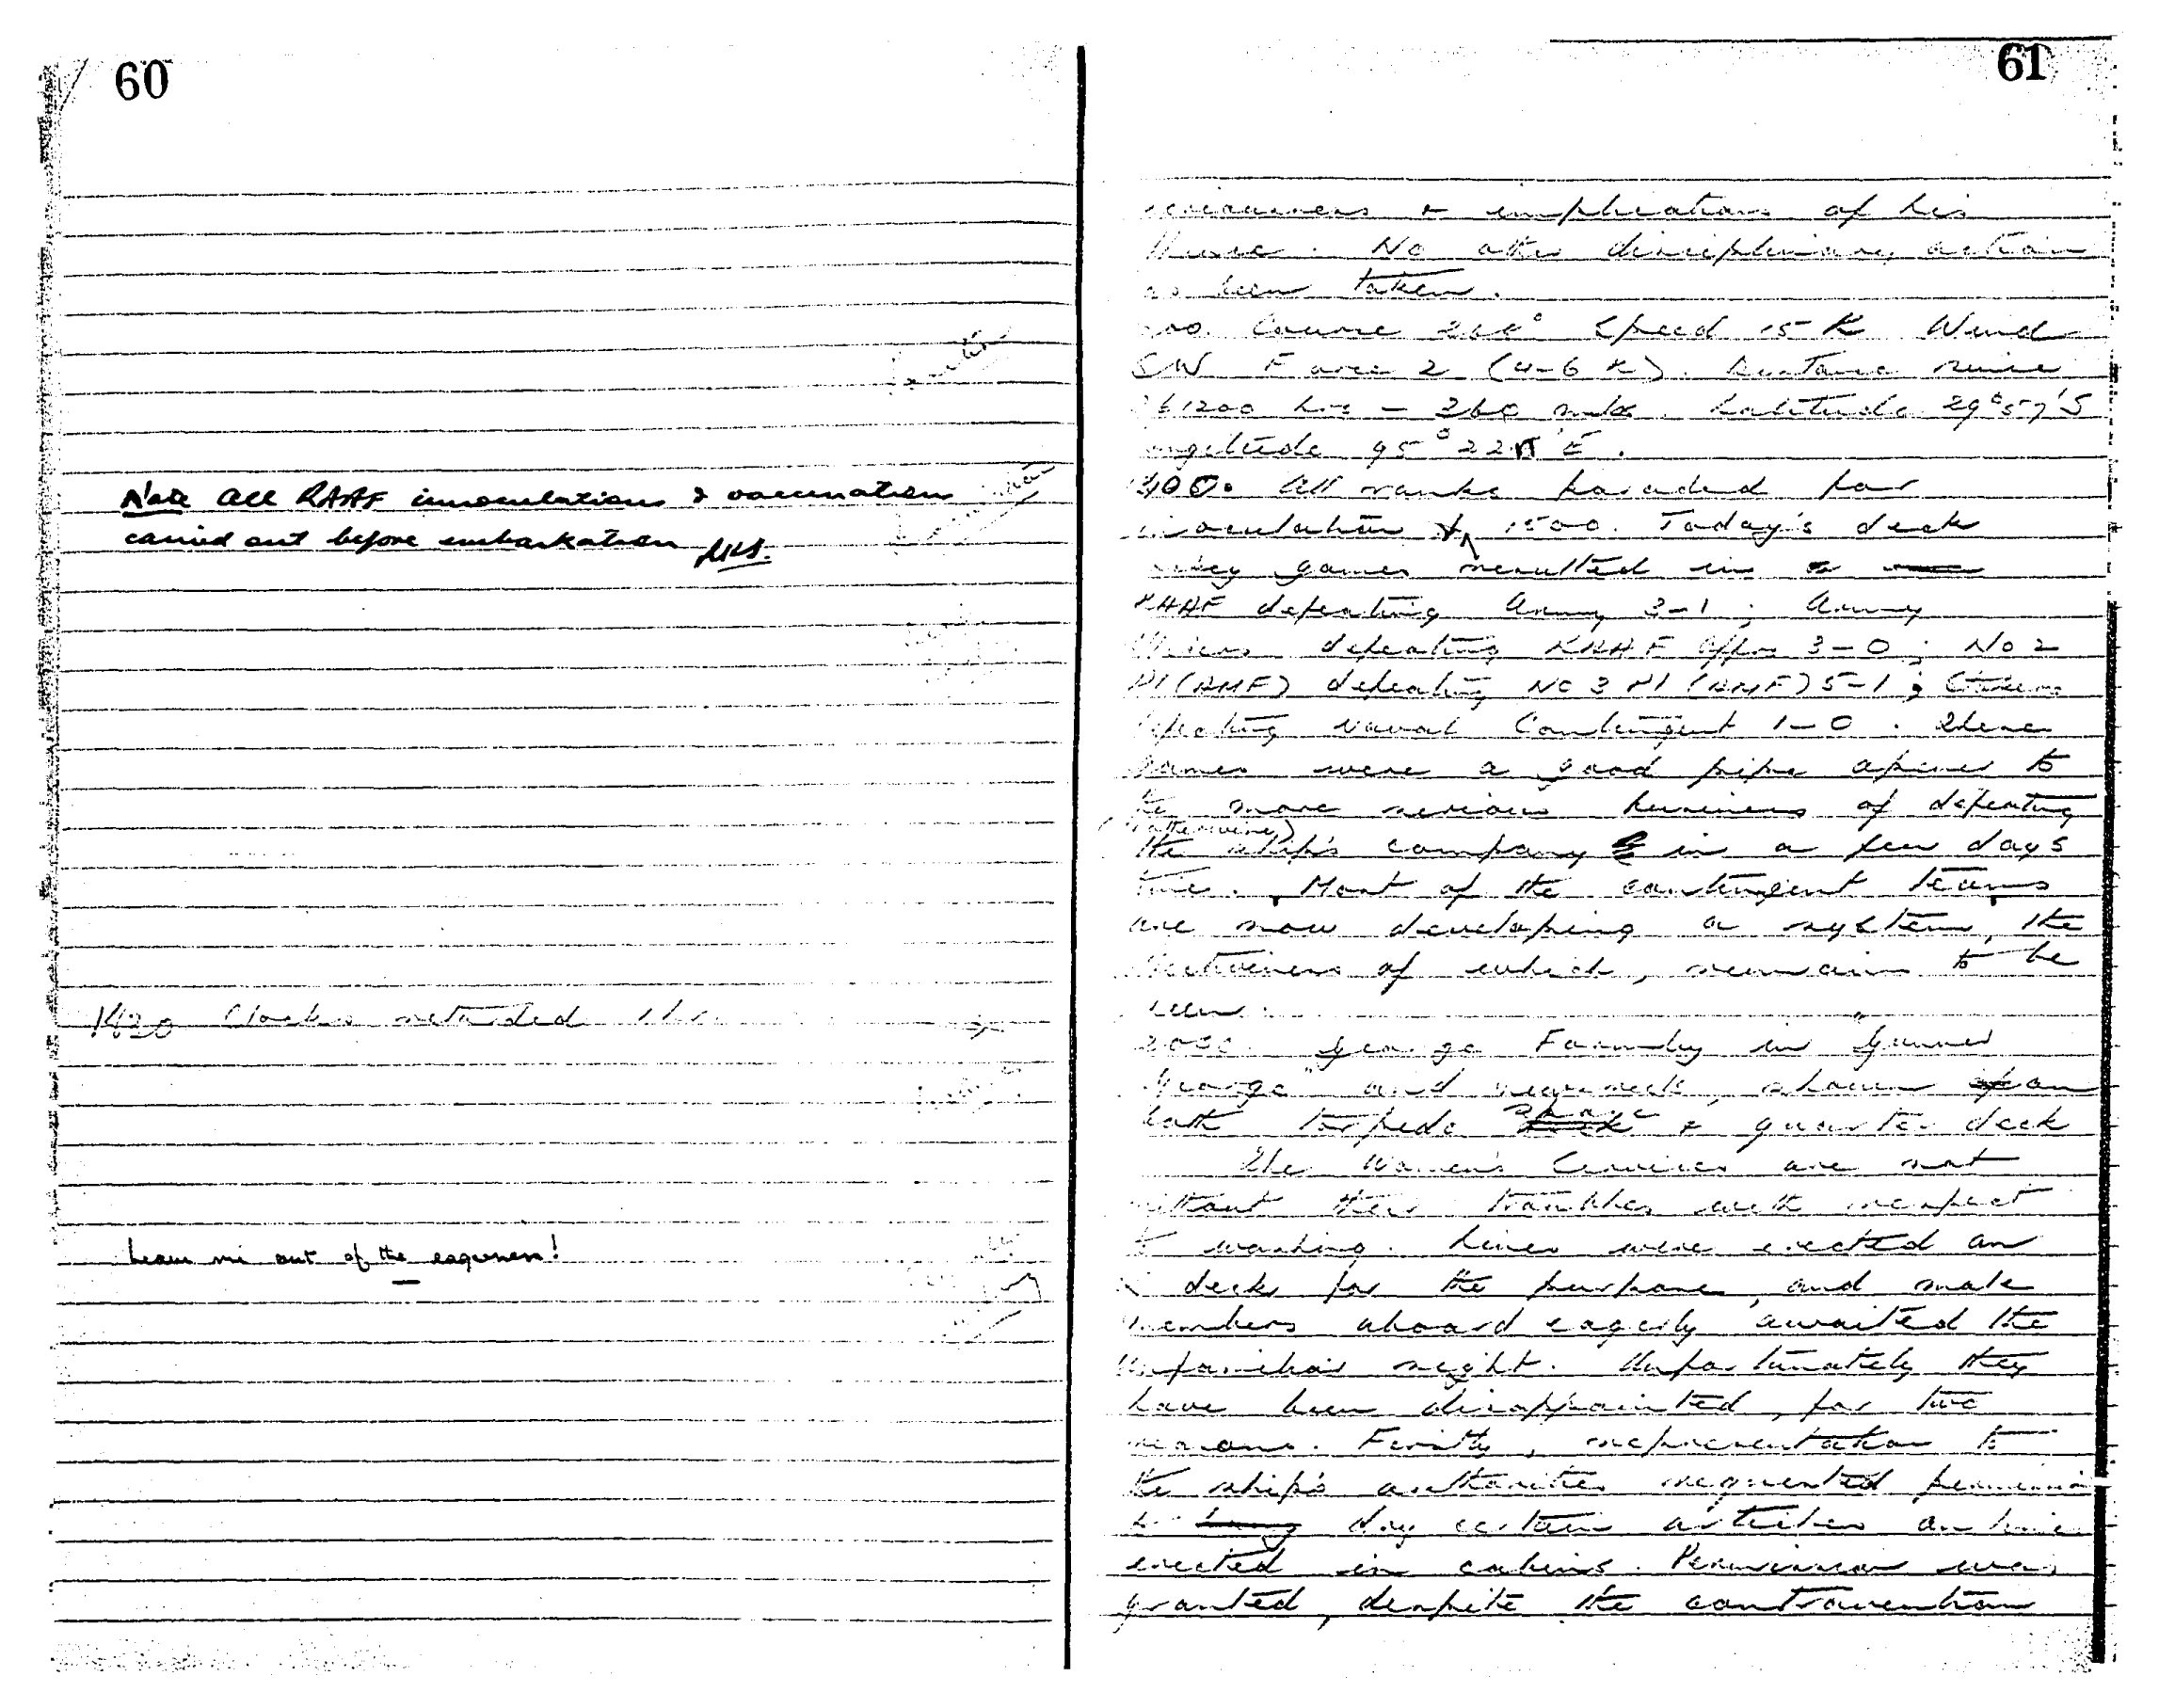 60
Note All RAAF innoculations & vaccination
carried out before embarkation
1430 Clocks retarded 1 hr.
Leave me out of the eagerness!
61
& implications of his
No other disciplinary action
been taken.
Course Speed 15 K Wind
SW Force 2 (4-6 K). Distance since
1200 hrs - 360 mls. Latitude 29°57'S
95° 22' E.
All ranks paraded for
1500. Today's deck
games resulted in a
RAAF defeating Army 3-1; Army
defeating RAAF Offrs 3-0; No 2
Pl (AMF) defeating No 3 Pl (AMF) 5-1;
Naval Contingent 1-0. These
games were a good pipe opener to
the more serious business of defeating
the ship's company in a few days
time. Most of the contingent teams
are now developing a system, the
of which, remains to be
seen.
2000. George Formby in "Gunner
George" and newsreels, shown on
both torpedo space & quarter deck
The Women's Services are not
without their troubles with respect
to washing. Lines were erected on
deck for the purpose, and male
members aboard eagerly awaited the
unfamiliar sight. Unfortunately they
have been disappointed, for two
reasons. Firstly, representation to
the ship's authorities requested permission
to hang dry certain articles on lines
erected in cabins. Permission was
granted, despite the contravention